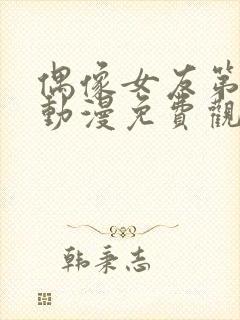 偶像女友第
動漫免費觀
韩秉志